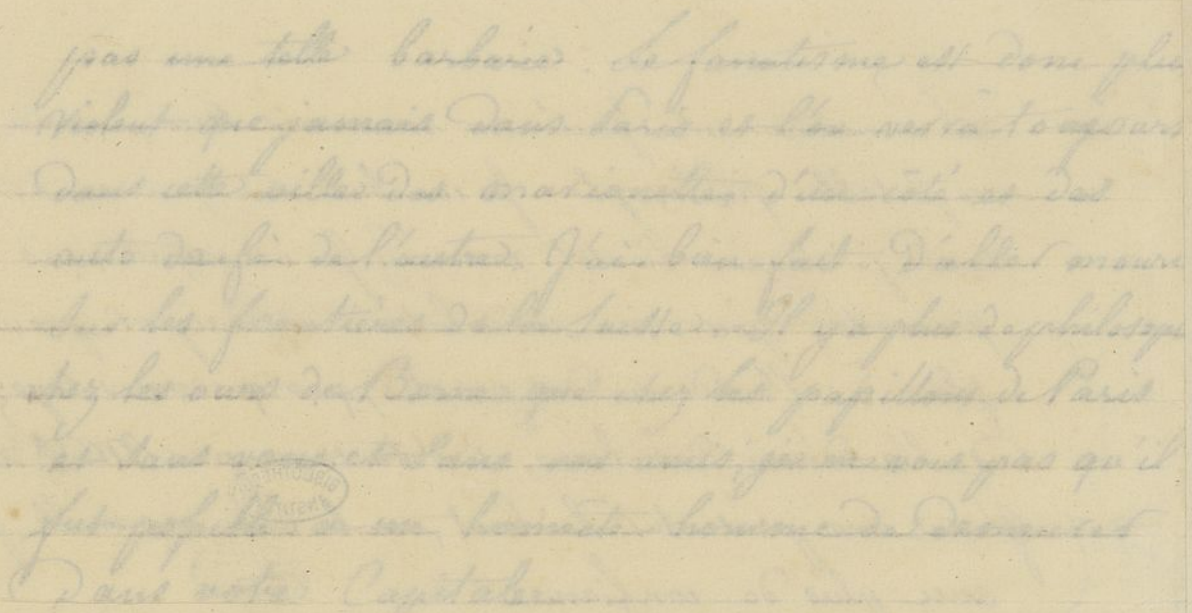 pas une telle barbarie. Le fanatisme est donc plus
violent que jamais dans Paris et l'on verra toujours
dans cette ville des marionettes d'un côté et des
auto da fé de l'autre. J'ai bien fait d'aller mourir
sur les frontières de la Suisse. Il y a plus de philosop
chez les ours de Berne que chez les papillons de Paris
et sans vous et sans vos amis, je ne vois pas qu'il
fut possible à un honnête homme de demeurer
Dans votre Capitale